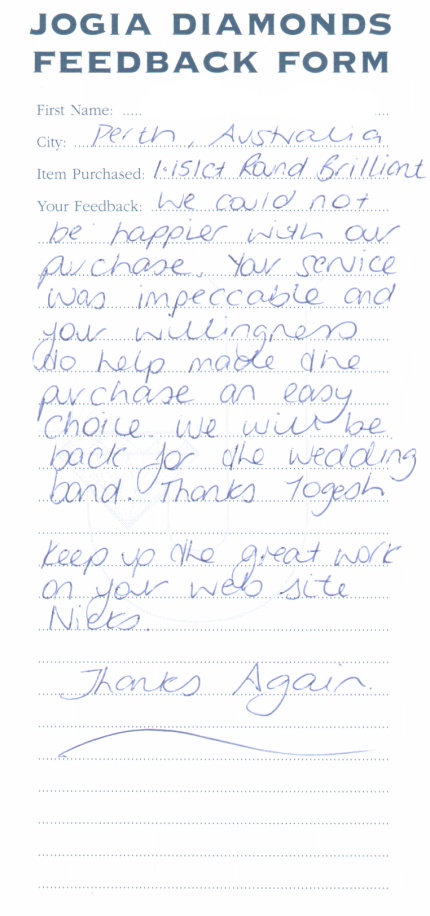 JOGIA DIAMONDS
FEEDBACK FORM
First Name:
City: Perth, Australia
Item Purchased: 1.151ct Round Brilliant
Your Feedback: We could not
be happier with our
purchase. Your service
was impeccable and
your willingness
to help made the
purchase an easy
choice. We will be
back for the wedding
band. Thanks Yogesh
Keep up the great work
on your web site
Nicks.
Thanks Again.